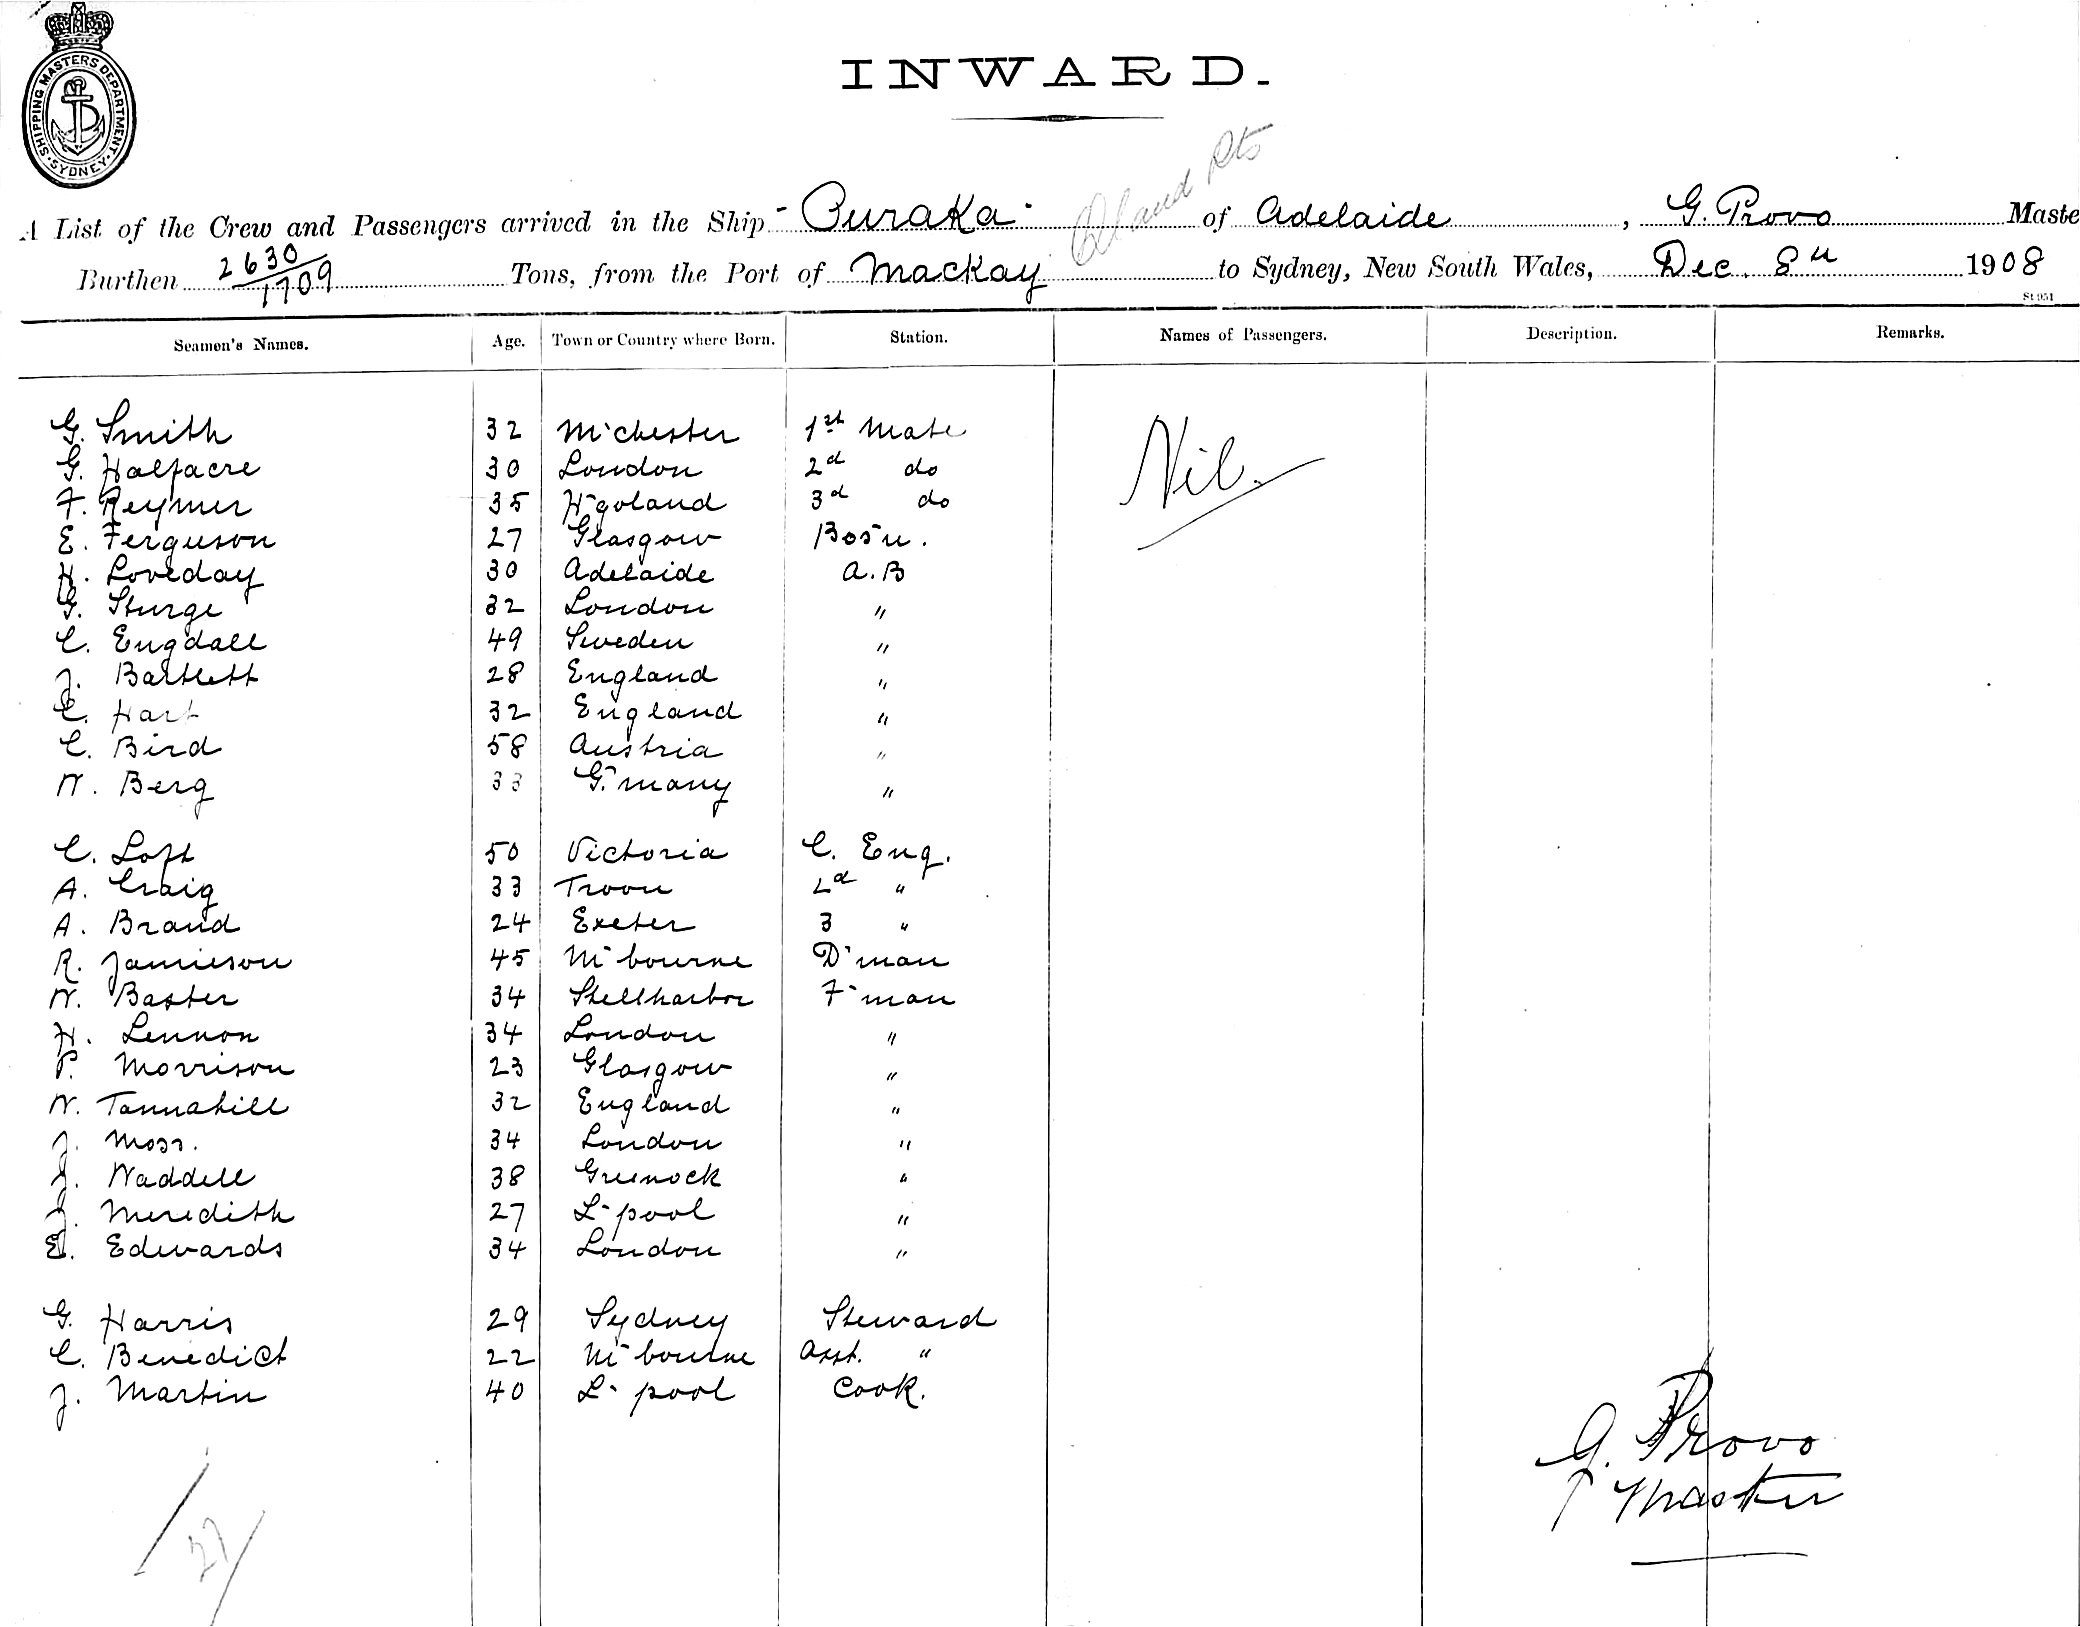 SHIPPING MASTERS DEPARTMENT. SYDNEY
INWARD.
A List of the Crew and Passengers arrived in the Ship "Ouraka" of Adelaide, G. Provo Maste
Burthen 2630/1709 Tons, from the Port of Mackay to Sydney, New South Wales, Dec. 8th 1908
St 951
Seamen's Names. Age. Town or Country where Born. Station. Names of Passengers. Description. Remarks.
G. Smith 32 M'chester 1st Mate Nil.
G. Halfacre 30 London 2d do
F. Reymer 35 H'goland 3d do
E. Ferguson 27 Glasgow Bos'n.
H. Loveday 30 Adelaide A.B
G. Sturge 32 London "
C. Engdall 49 Sweden "
J. Bartlett 28 England "
C. Hart 32 England "
C. Bird 58 Austria "
W. Berg 33 G'many "
C. Loft 50 Victoria C. Eng.
A. Craig 33 Troon 2d "
A. Brand 24 Exeter 3 "
R. Jamieson 45 M'bourne D'man
W. Baxter 34 Shellharbor F'man
H. Lennon 34 London "
P. Morrison 23 Glasgow "
W. Tannahill 32 England "
J. Moss. 34 London "
J. Waddell 38 Greenock "
J. Meredith 27 L'pool "
E. Edwards 34 London "
G. Harris 29 Sydney Steward
C. Benedict 22 M'bourne Asst. "
J. Martin 40 L'pool Cook.
G. Provo
Master
27